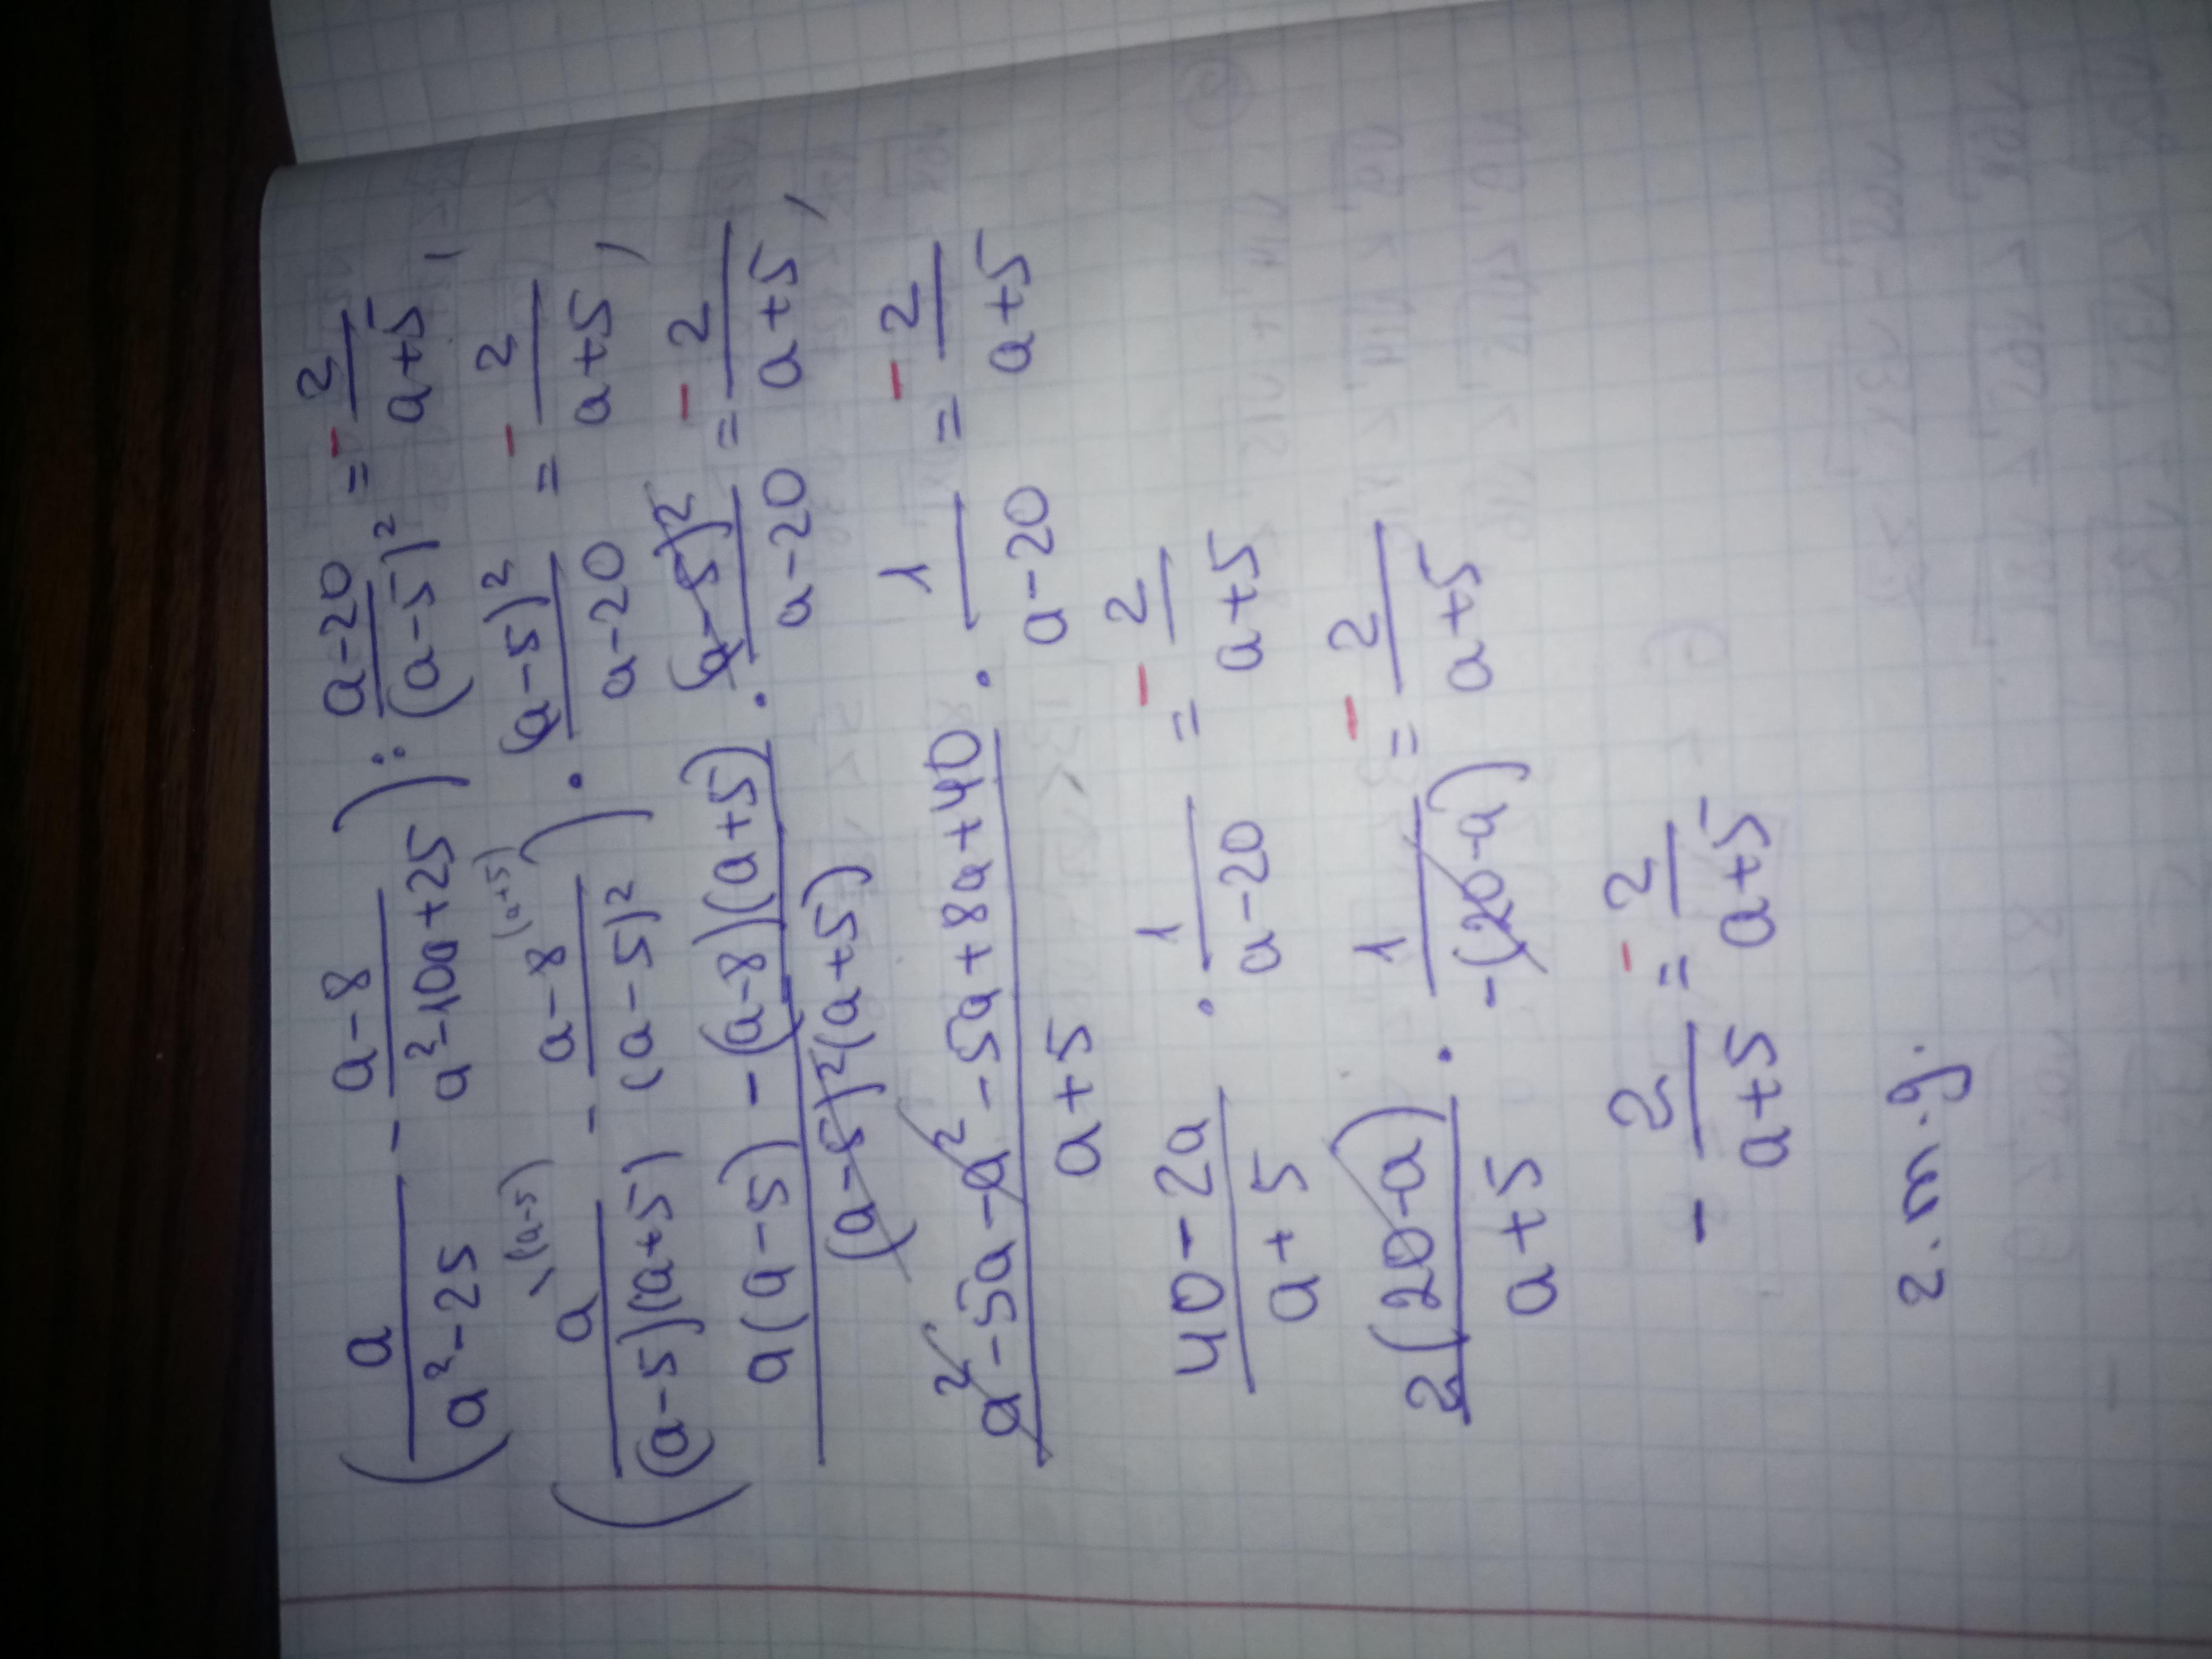 (a/(a²-25) - (a-8)/(a²-10a+25)) : (a-20)/(a-5)² = -2/(a+5),
(a\(a-5)/((a-5)(a+5)) - (a-8)(a+5)/(a-5)²) · (a-5)²/(a-20) = -2/(a+5),
(a(a-5) - (a-8)(a+5))/((a-5)²(a+5)) · (a-5)²/(a-20) = -2/(a+5),
(a²-5a-a²-5a+8a+40)/(a+5) · 1/(a-20) = -2/(a+5)
(40-2a)/(a+5) · 1/(a-20) = -2/(a+5)
2(20-a)/(a+5) · 1/-(20-a) = -2/(a+5)
-2/(a+5) = -2/(a+5)
2.m.g.